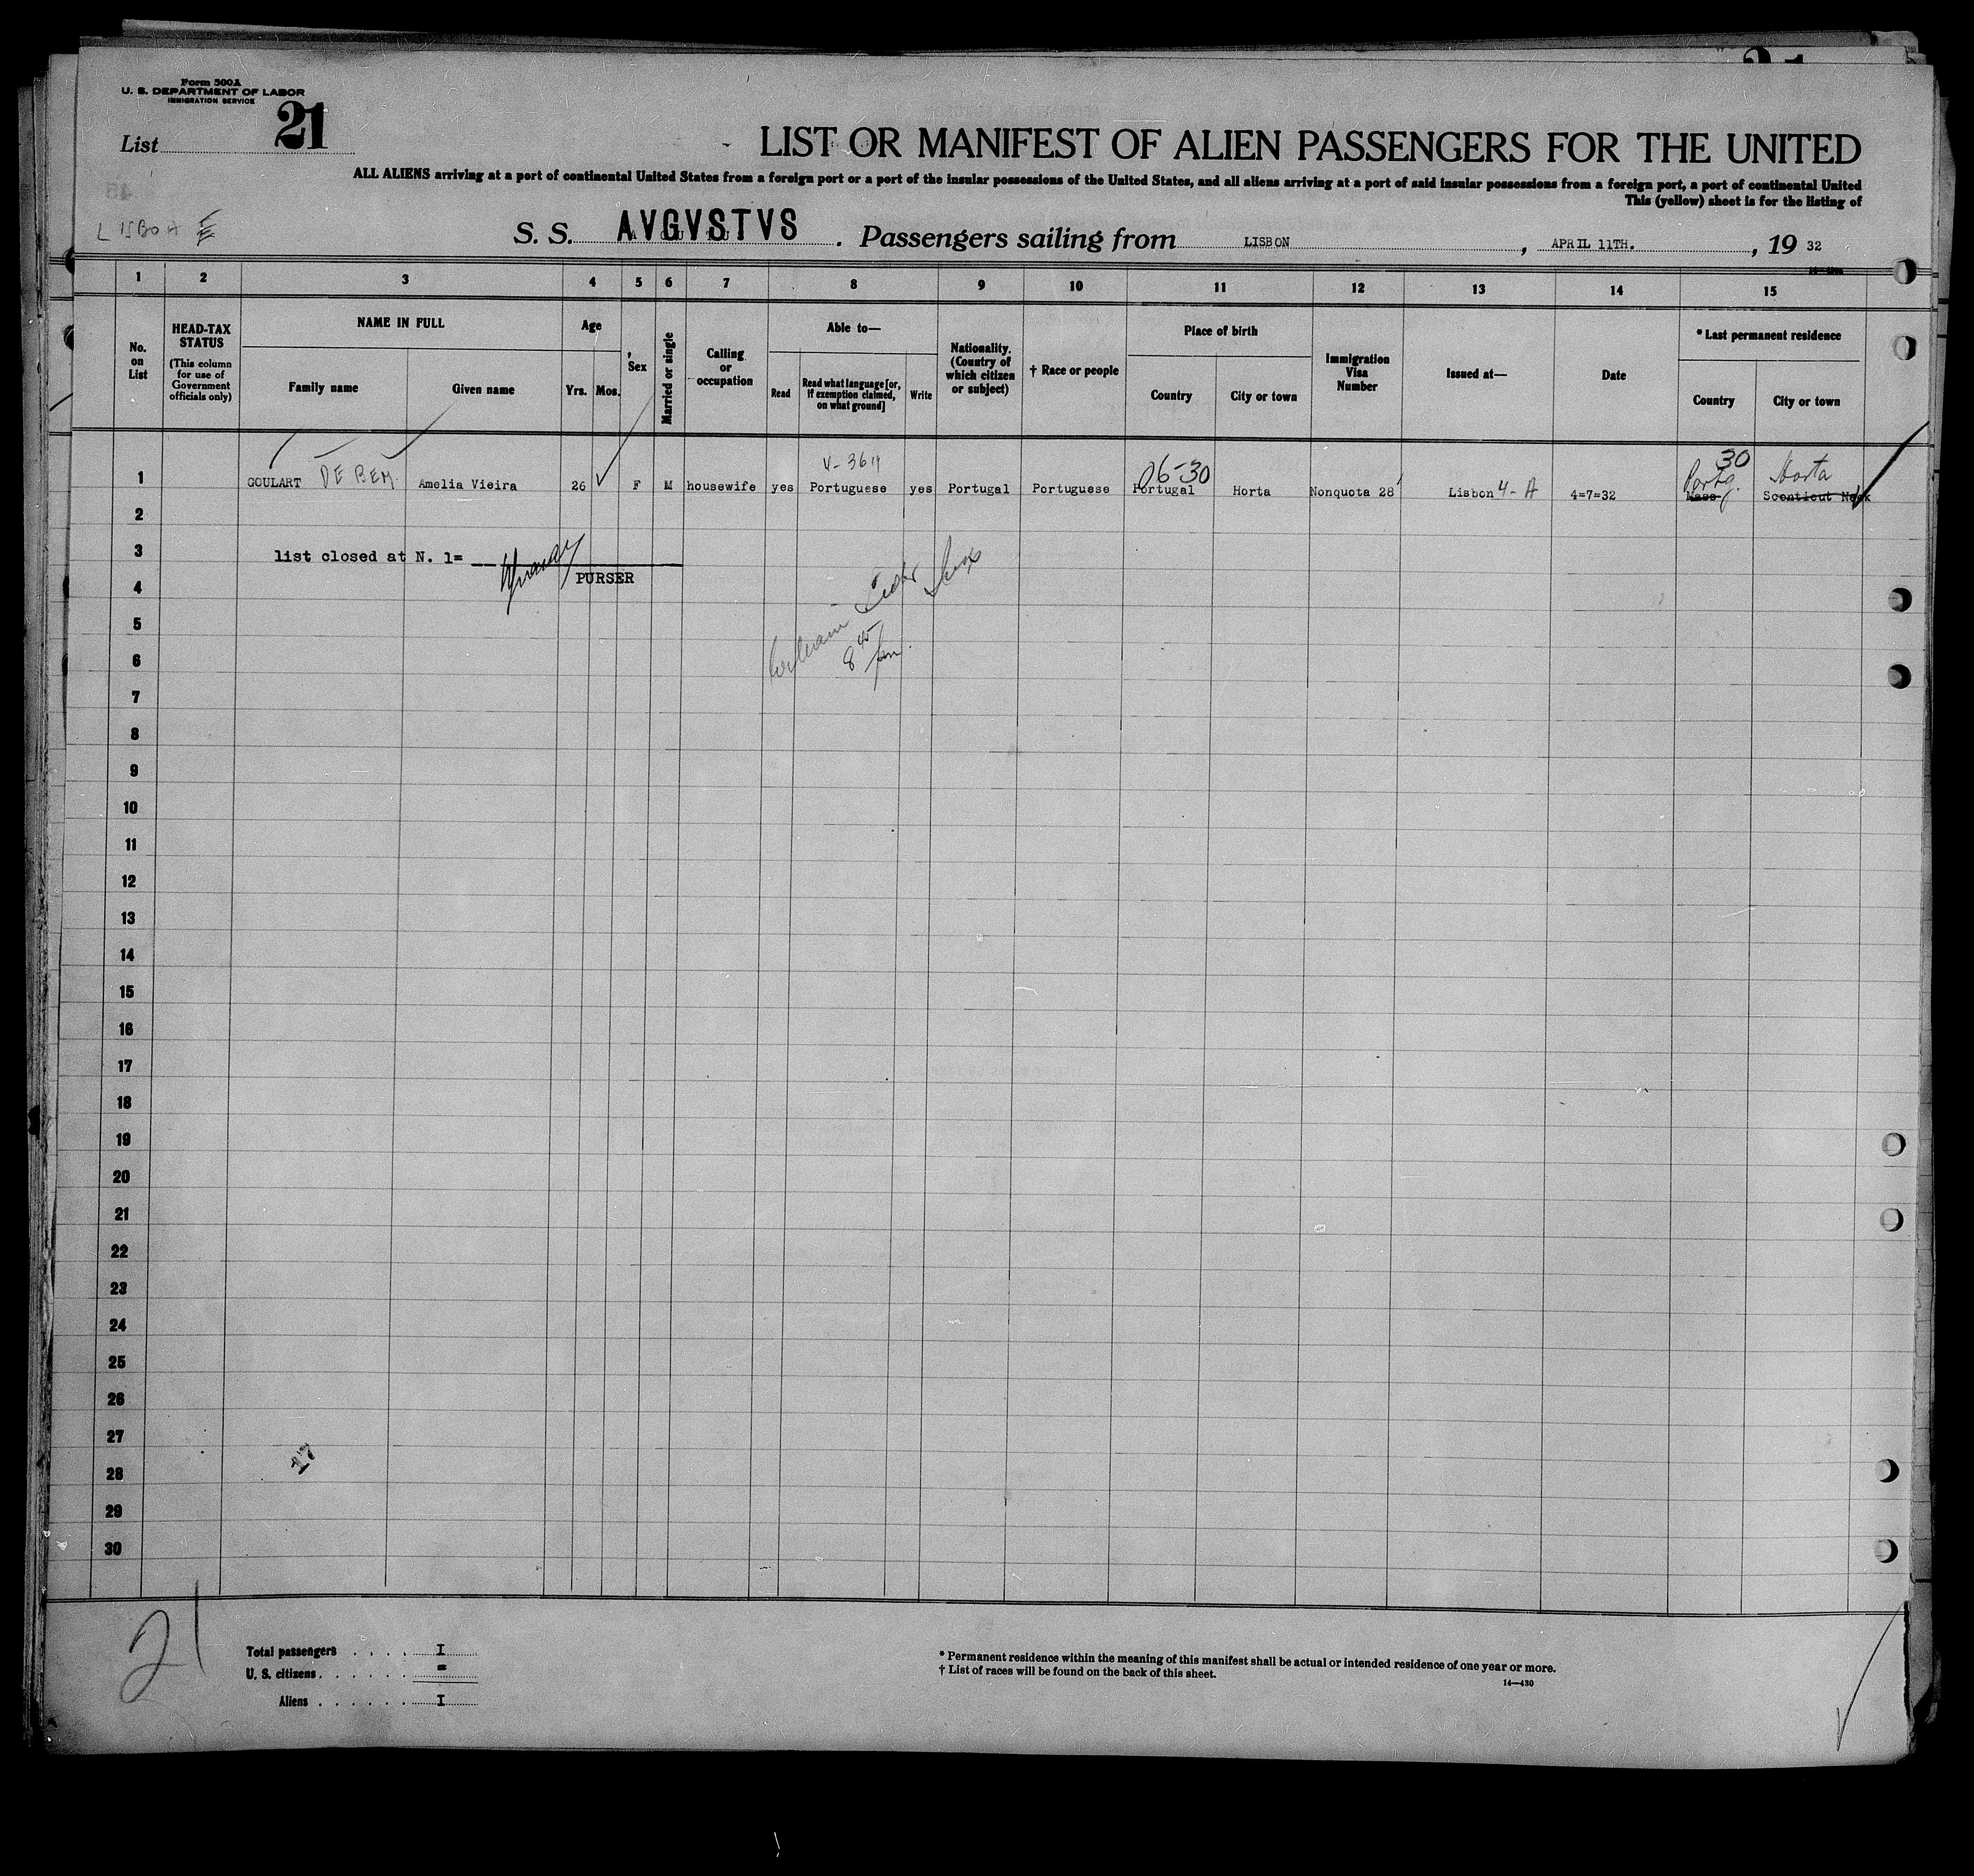 Form 500A
U. S. DEPARTMENT OF LABOR
IMMIGRATION SERVICE
List 21
LIST OR MANIFEST OF ALIEN PASSENGERS FOR THE UNITED
ALL ALIENS arriving at a port of continental United States from a foreign port or a port of the insular possessions of the United States, and all aliens arriving at a port of said insular possessions from a foreign port, a port of continental United
This (yellow) sheet is for the listing of
LISBOA
S. S. AVGVSTVS. Passengers sailing from LISBON, APRIL 11TH., 19 32
1 2 3 4 5 6 7 8 9 10 11 12 13 14 15
No. on List
HEAD-TAX STATUS
(This column for use of Government officials only)
NAME IN FULL
Family name
Given name
Age
Yrs. Mos.
Sex
Married or single
Calling or occupation
Able to—
Read
Read what language [or, if exemption claimed, on what ground]
Write
Nationality. (Country of which citizen or subject)
† Race or people
Place of birth
Country
City or town
Immigration Visa Number
Issued at—
Date
* Last permanent residence
Country
City or town
V-364
06-30
30
Portg. Horta
1 GOULART DE BEM. Amelia Vieira 26 F M housewife yes Portuguese yes Portugal Portuguese Portugal Horta Nonquota 28 Lisbon 4-A 4=7=32 Mass Sconticut Neck
2
3 list closed at N. 1=
PURSER
4
5
6
8 45 pm.
7
8
9
10
11
12
13
14
15
16
17
18
19
20
21
22
23
24
25
26
27
17
28
29
30
21
Total passengers . . . . I
U. S. citizens . . . . . . =
Aliens . . . . . . . I
* Permanent residence within the meaning of this manifest shall be actual or intended residence of one year or more.
† List of races will be found on the back of this sheet.
14—430